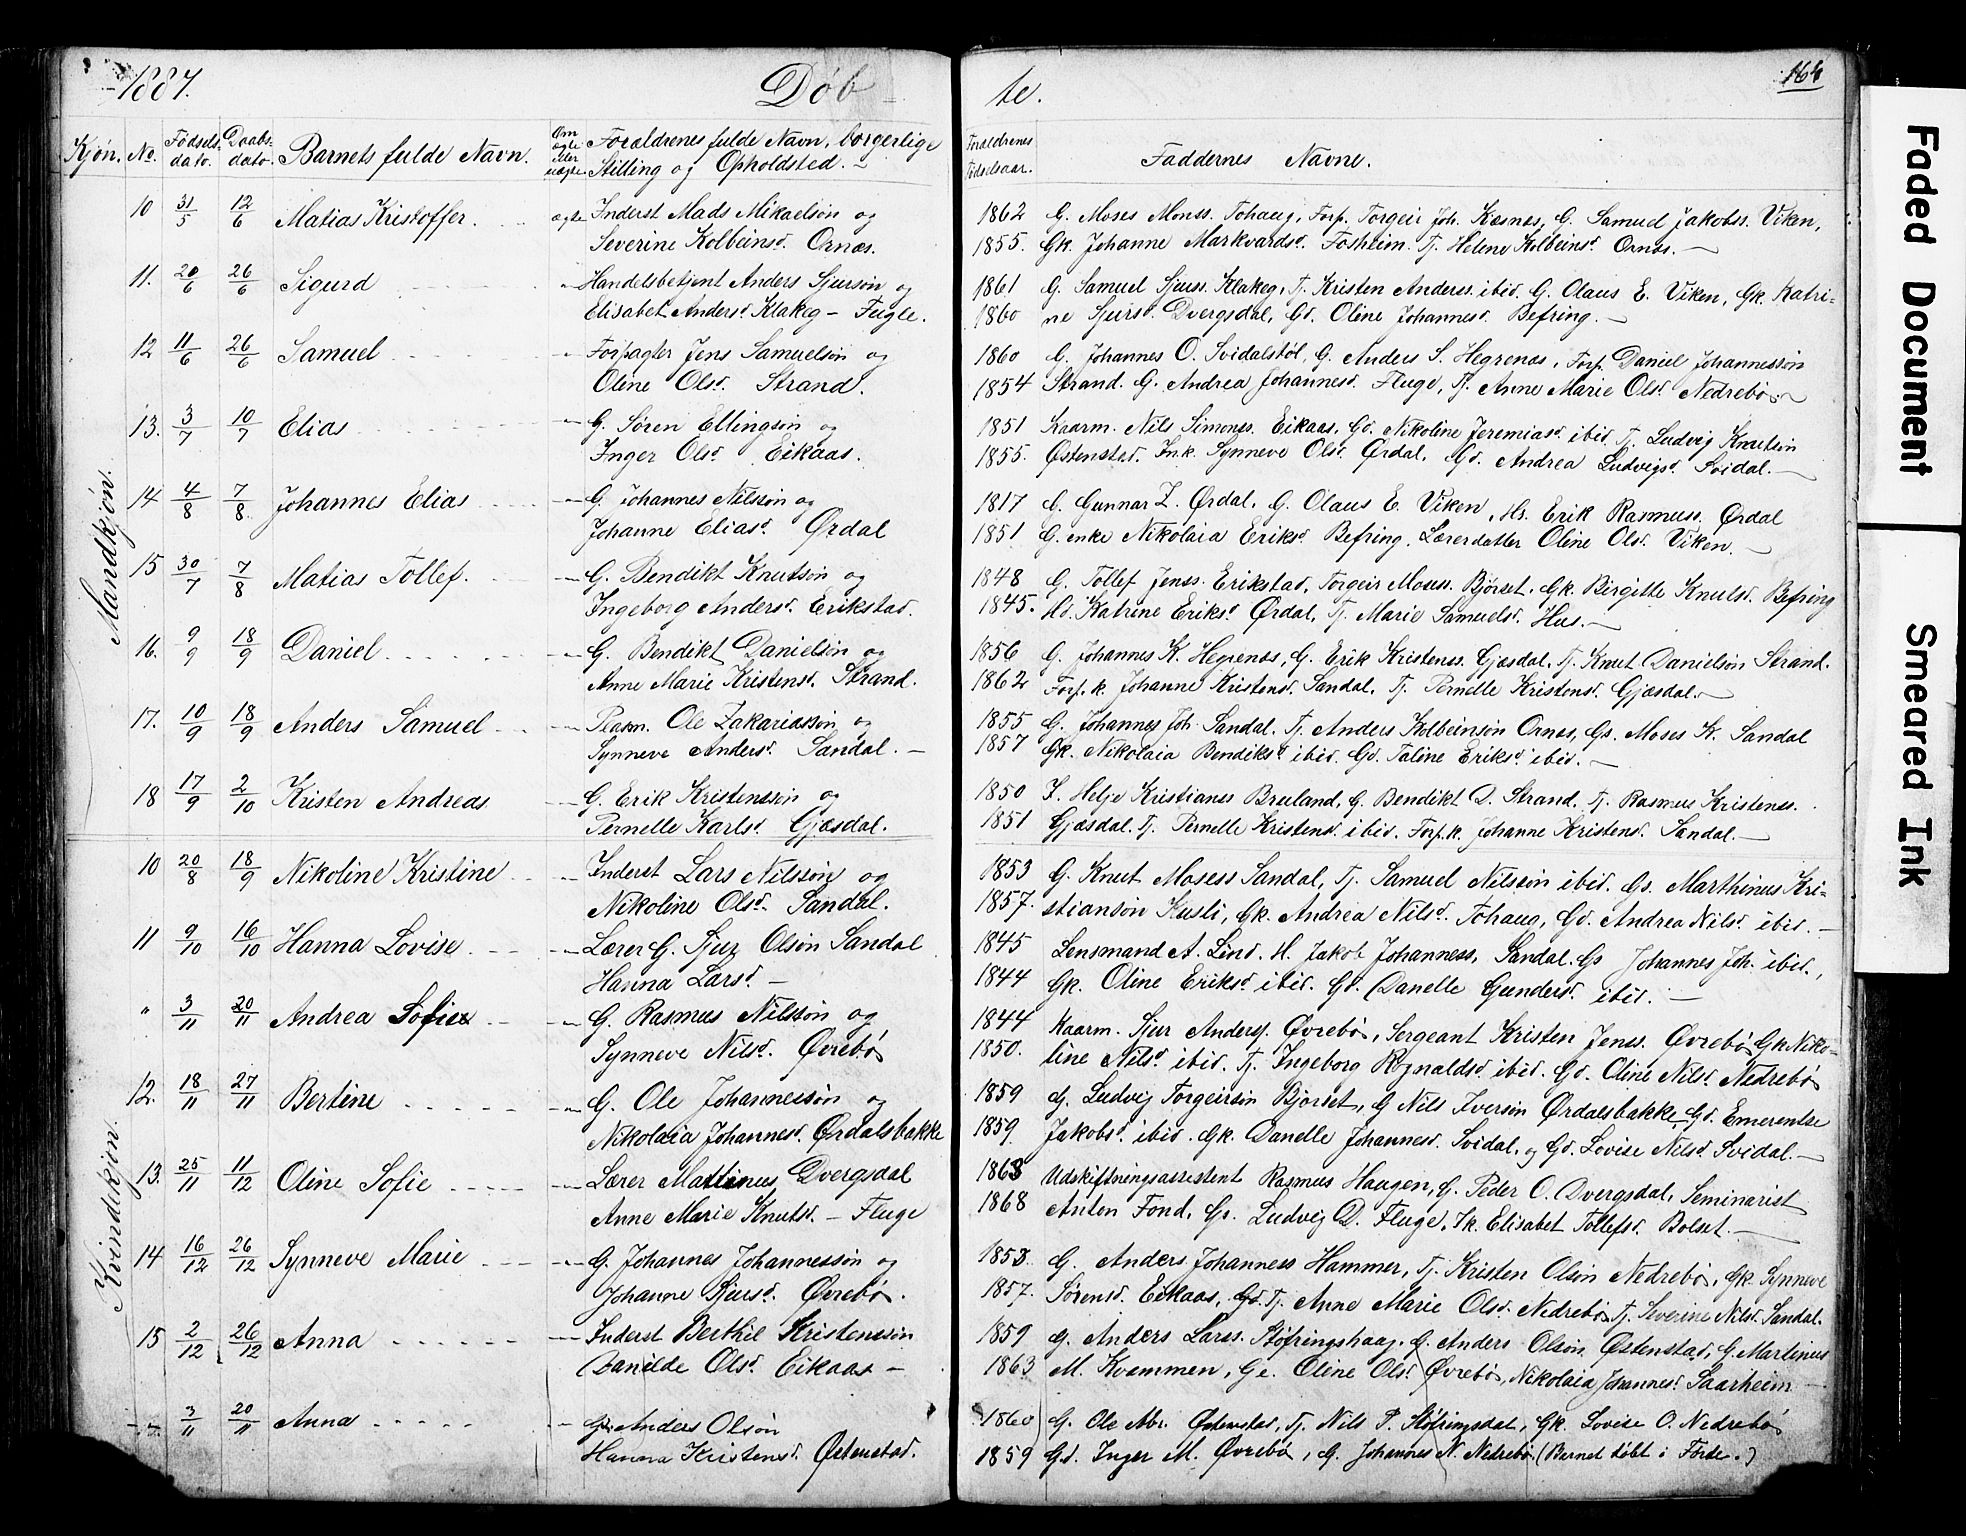 1887.
Døb
te.
164
Kjøn. No. Fødsels dato. Daabs- dato. Barnets fulde Navn. Om ægte eller uægte Forældrenes fulde Navn, borgerlige Stilling og Opholdsted.
Forældrenes Fødselsaar. Faddernes Navne.
Mandkjøn.
10 31/5 12/6 Matias Kristoffer. ægte Inderst Mads Mikaelsøn og
Severine Kolbeinsd. Ornæs.
1862 G. Moses Monss. Tohaug, Forp. Torgeir Joh. Kæsnes, G. Samuel Jakobss. Viken,
1855. Gk. Johanne Markvardsd. Fosheim. Tj. Helene Kolbeinsd. Ornæs. —
11. 20/6 26/6 Sigurd — Handelsbetjent Anders Sjursøn og
Elisabet Andersd. Klakeg — Fugle.
1861 G. Samuel Sjurss. Klakeg, Tj. Kristen Anderss. ibid. G. Olaus E. Viken, Gk. Katri-
1860 ne Sjursd. Dvergsdal, Gd. Oline Johannesd. Befring. —
12 11/6 26/6 Samuel — Forpagter Jens Samuelsøn og
Oline Olsd. Strand.
1860 G. Johannes O. Svidalstøl, G. Anders S. Hegrenæs, Forp. Daniel Johannessøn
1854 Strand. G. Andrea Johannesd. Fluge, Tj. Anne Marie Olsd. Nedrebø. —
13. 3/7 10/7 Elias — G. Søren Ellingsøn og
Inger Olsd. Eikaas.
1851 Kaarm. Nils Simonss. Eikaas, Gd. Nikoline Jeremiasd. ibid. Tj. Ludvig Knutsøn
1855. Østenstad. Ink. Synneve Olsd. Ørdal, Gd. Andrea Ludvigsd. Svidal. —
14 4/8 7/8. Johannes Elias — G. Johannes Nilssøn og
Johanne Eliasd. Ørdal
1817 G. Gunnar Z. Ørdal, G. Olaus E. Viken, Hs. Erik Rasmuss. Ørdal
1851 G. enke Nikolaia Eriksd. Befring. Lærerdatter Oline Olsd. Viken. —
15 30/7 7/8 Matias Tollef. — G. Bendikt Knutsøn og
Ingeborg Andersd. Erikstad.
1848 G. Tollef Jenss. Erikstad, Torgeir Moses. Bjørset, Gk. Birgitte Knutsd. Befring
1845. Hd. Katrine Eriksd. Ørdal, Tj. Marie Samuelsd. Hus. —
16. 9/9 18/9 Daniel — G. Bendikt Danielsøn og
Anne Marie Kristensd. Strand.
1856 G. Johannes K. Hegrenæs, G. Erik Kristenss. Gjæsdal, Tj. Knut Danielsøn Strand.
1862 Forp. k. Johanne Kristensd. Sandal, Tj. Pernelle Kristensd. Gjæsdal. —
17. 10/9 18/9 Anders Samuel — Ole Zakariassøn og
Synneve Andersd. Sandal. —
1855 G. Johannes Joh. Sandal. Tj. Anders Kolbeinsøn Ornæs, Gs. Moses K. Sandal
1857 Gk. Nikolaia Bendiksd. ibid. Gd. Taline Eriksd. ibid. —
18 17/9 2/10 Kristen Andreas — G. Erik Kristenssøn og
Pernelle Karlsd. Gjæsdal.
1850 I. Helje Kristianss Breiland, G. Bendikt D. Strand, Tj. Rasmus Kristenss.
1851 Gjæsdal. Tj. Pernelle Kristensd. ibid. Forp. k. Johanne Kristensd. Sandal. —
Kvindekjøn.
10 20/8 18/9 Nikoline Kristine — Inderst Lars Nilssøn og
Nikoline Olsd. Sandal.
1853 G. Knut Mosess Sandal, Tj. Samuel Nilssøn ibid. Gs. Marthinus Kri-
1857. stiansøn Kusli, Gk. Andrea Nilsd. Tohaug, Gd. Andrea Nilsd. ibid. —
11 9/10 16/10 Hanna Lovise. — Lærer G. Sjur Olsøn Sandal
Hanna Larsd. —
1845 Lensmand A. Lind, H. Jakob Johanness, Sandal. Gs Johannes Joh. ibid.,
1844 Gk. Oline Eriksd. ibid. Gd. Danelle Gundersd. ibid. —
" 3/11 20/11 Andrea Sofie — G. Rasmus Nilssøn og
Synneve Nilsd. Øvrebø
1844 Kaarm. Sjur Anderss. Øvrebø, Sergeant Kristen Jenss. Øvrebø, Gk Niko-
1850. line Nilsd. ibid. Tj. Ingeborg Rognaldsd. ibid. Gd. Oline Nilsd. Nedrebø
12. 18/11 27/11 Bertine — G. Ole Johannessøn og
Nikolaia Johannesd. Ørdalsbakke
1859 G. Ludvig Torgeirsøn Bjørset, G Nils Iversøn Ørdalsbakke, Gd. Emerentse
1859. Jakobsd. ibid. Gk. Danelle Johannesd. Svidal, og Gd. Lovise Nilsd. Svidal. —
13. 25/11 11/12 Oline Sofie — Lærer Mattinus Dvergsdal
Anne Marie Knutsd. — Fluge
1863 Udskiftningsassistent Rasmus Haugen, G. Peder O. Dvergsdal, Seminarist
1868 Anton Fond, Gs. Ludvig D. Fluge, Ik. Elisabet Tollefsd. Bolset. —
14 16/12 26/12 Synneve Marie — G. Johannes Johannessøn og
Johanne Sjursd. Øvrebø.
1853. G. Anders Johanness Hammer, Tj. Kristen Olsøn Nedrebø, Gk. Synneve
1857. Sørensd. Eikaas, Gd. Tj. Anne Marie Olsd. Nedrebø, Tj. Severine Nilsd. Sandal.
15 2/12 26/12 Anna — Inderst Berthil Kristenssøn
Danilde Olsd. Eikaas —
1859 G. Anders Larss. Støfringshaag, G. Anders Olsøn Østenstad, G. Martinus
1863 M. Kvammen, Ge. Oline Olsd. Øvrebø, Nikolaia Johannesd. Saarheim —
3/11 20/11 Anna — Anders Olsøn
Hanna Kristensd. Østenstad.
1860 G. Ole Østenstad, Tj. Nils P. Støfringsdal, Gk. Lovise O. Nedrebø
1859 Gd. Inger M. Øvrebø, G. Johannes N. Nedrebø. (Barnet døbt i Førde.)
Faded Document
Smeared Ink